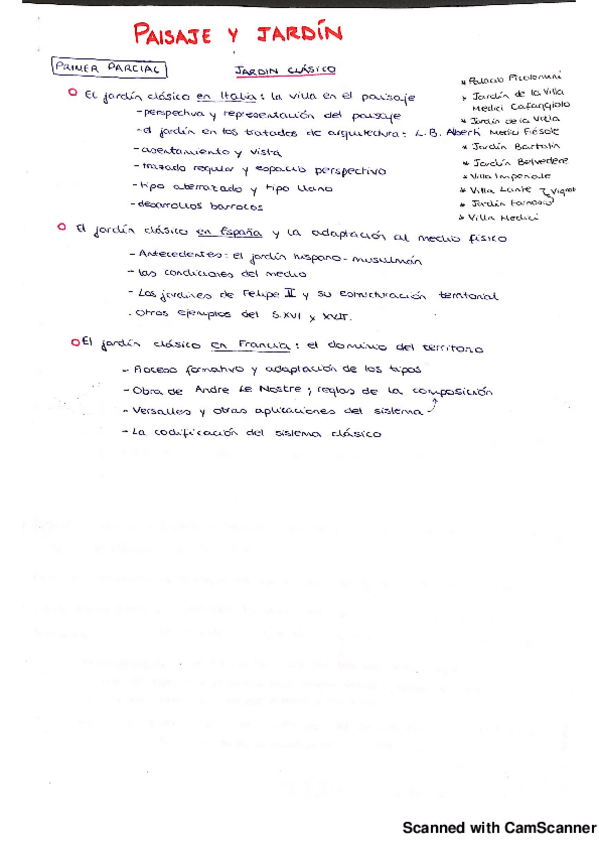 PAISAJE Y JARDÍN
PRIMER PARCIAL
JARDIN CLÁSICO
El jardín clásico en Italia: la villa en el paisaje
- perspectiva y representación del paisaje
- el jardín en los tratados de arquitectura: L.B. Alberti
- asentamiento y vista
- trazado regular y espacio perspectivo
- tipo aterrazado y tipo llano
- desarrollos barrocos
* Palacio Picolomini
* Jardín de la Villa
Medici Cafaggiolo
* Jardín de la Villa
Medici Fiesole
* Jardín Bartolin
* Jardín Belvedere
* Villa Imperiale
* Villa Lante
* Jardín Farnesio
* Villa Medici
El jardín clásico en España y la adaptación al medio físico
- Antecedentes: el jardín hispano-musulmán
- Las condiciones del medio
- Los jardines de Felipe II y su estructuración territorial
. Otros ejemplos del S.XVI y XVII.
El jardín clásico en Francia: el dominio del territorio
- Proceso formativo y adaptación de los tipos
- Obra de Andre Le Nostre; reglas de la composición
- Versalles y otras aplicaciones del sistema
- La codificación del sistema clásico
Scanned with CamScanner